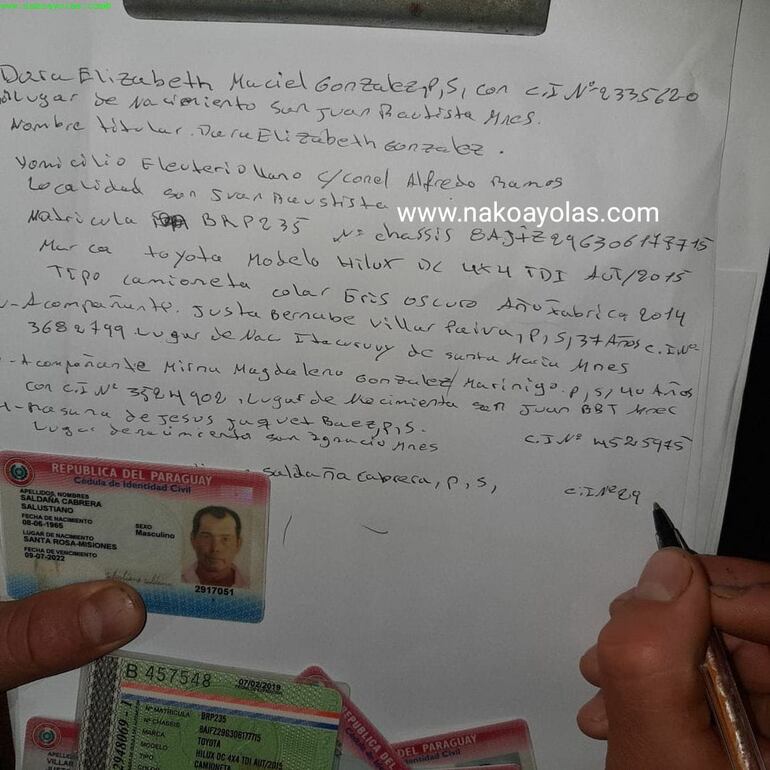 www.nakoayolas.com
Dora Elizabeth Maciel Gonzalez, P, S, con C.I Nº 2335620
Lugar de Nacimiento San Juan Bautista Mnes.
Nombre titular. Dara Elizabeth Gonzalez.
Domicilio Eleuterio Llano c/conel Alfredo Ramos
Localidad San Juan Baustista
www.nakoayolas.com
Matricula BRP235 Nº chassis 8AJFZ296306173715
Marca toyota Modelo Hilux DC 4x4 TDI AUT/2015
Tipo camioneta colar Gris oscuro Año Fabrica 2014
Acompañante. Justa Bernabe Villar Paiva, P, S, 37 Años C.I Nº
3682799. Lugar de Nac Itacuruvy de santa Maria Mnes
-Acompañante Mirna Magdalena Gonzalez Marinigo. P, S, 40 Años
con C.I Nº 3524902, Lugar de Nacimiento San Juan BBT Mnes
de Jesus Jaquet Baez, P, S. C.I Nº 4525975
Lugar de nacimiento san Ignacio Mnes
saldaña cabrera, P, S, C.I Nº 29
REPUBLICA DEL PARAGUAY
Cédula de Identidad Civil
APELLIDOS, NOMBRES
SALDAÑA CABRERA
SALUSTIANO
FECHA DE NACIMIENTO
08-06-1965
SEXO
Masculino
LUGAR DE NACIMIENTO
SANTA ROSA-MISIONES
FECHA DE VENCIMIENTO
09-07-2022
2917051
B 457548 07/02/2019
Nº MATRICULA BRP235
Nº CHASSIS 8AJFZ29G306177715
MARCA TOYOTA
MODELO HILUX DC 4X4 TDI AUT/2015
TIPO CAMIONETA
2948069-1
REPUBLICA DEL
DEL PARAGUAY
APELLIDOS
VILLAR